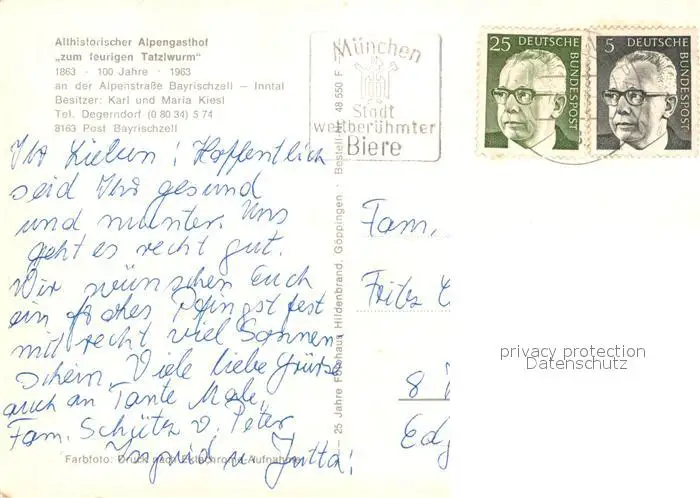 Althistorischer Alpengasthof
„zum feurigen Tatzlwurm"
1863 - 100 Jahre - 1963
an der Alpenstraße Bayrischzell — Inntal
Besitzer: Karl und Maria Kiesl
Tel. Degerndorf (0 80 34) 5 74
8163 Post Bayrischzell
Ihr Lieben! Hoffentlich
seid Ihr gesund
und munter. Uns
geht es recht gut.
Wir wünschen Euch
ein frohes Pfingstfest
mit recht viel Sonnen
schein. Viele liebe Grüße
auch an Tante Male,
Fam. Schütz v. Peter
Ingrid u. Jutta!
Farbfoto: Druck nach Ektachrome-Aufnahme
25 Jahre Fotohaus Hildenbrand, Göppingen · Bestell 48 550 F
München
Stadt
weltberühmter
Biere
25 DEUTSCHE BUNDESPOST
5 DEUTSCHE BUNDESPOST
Fam.
Fritz
8
privacy protection
Datenschutz